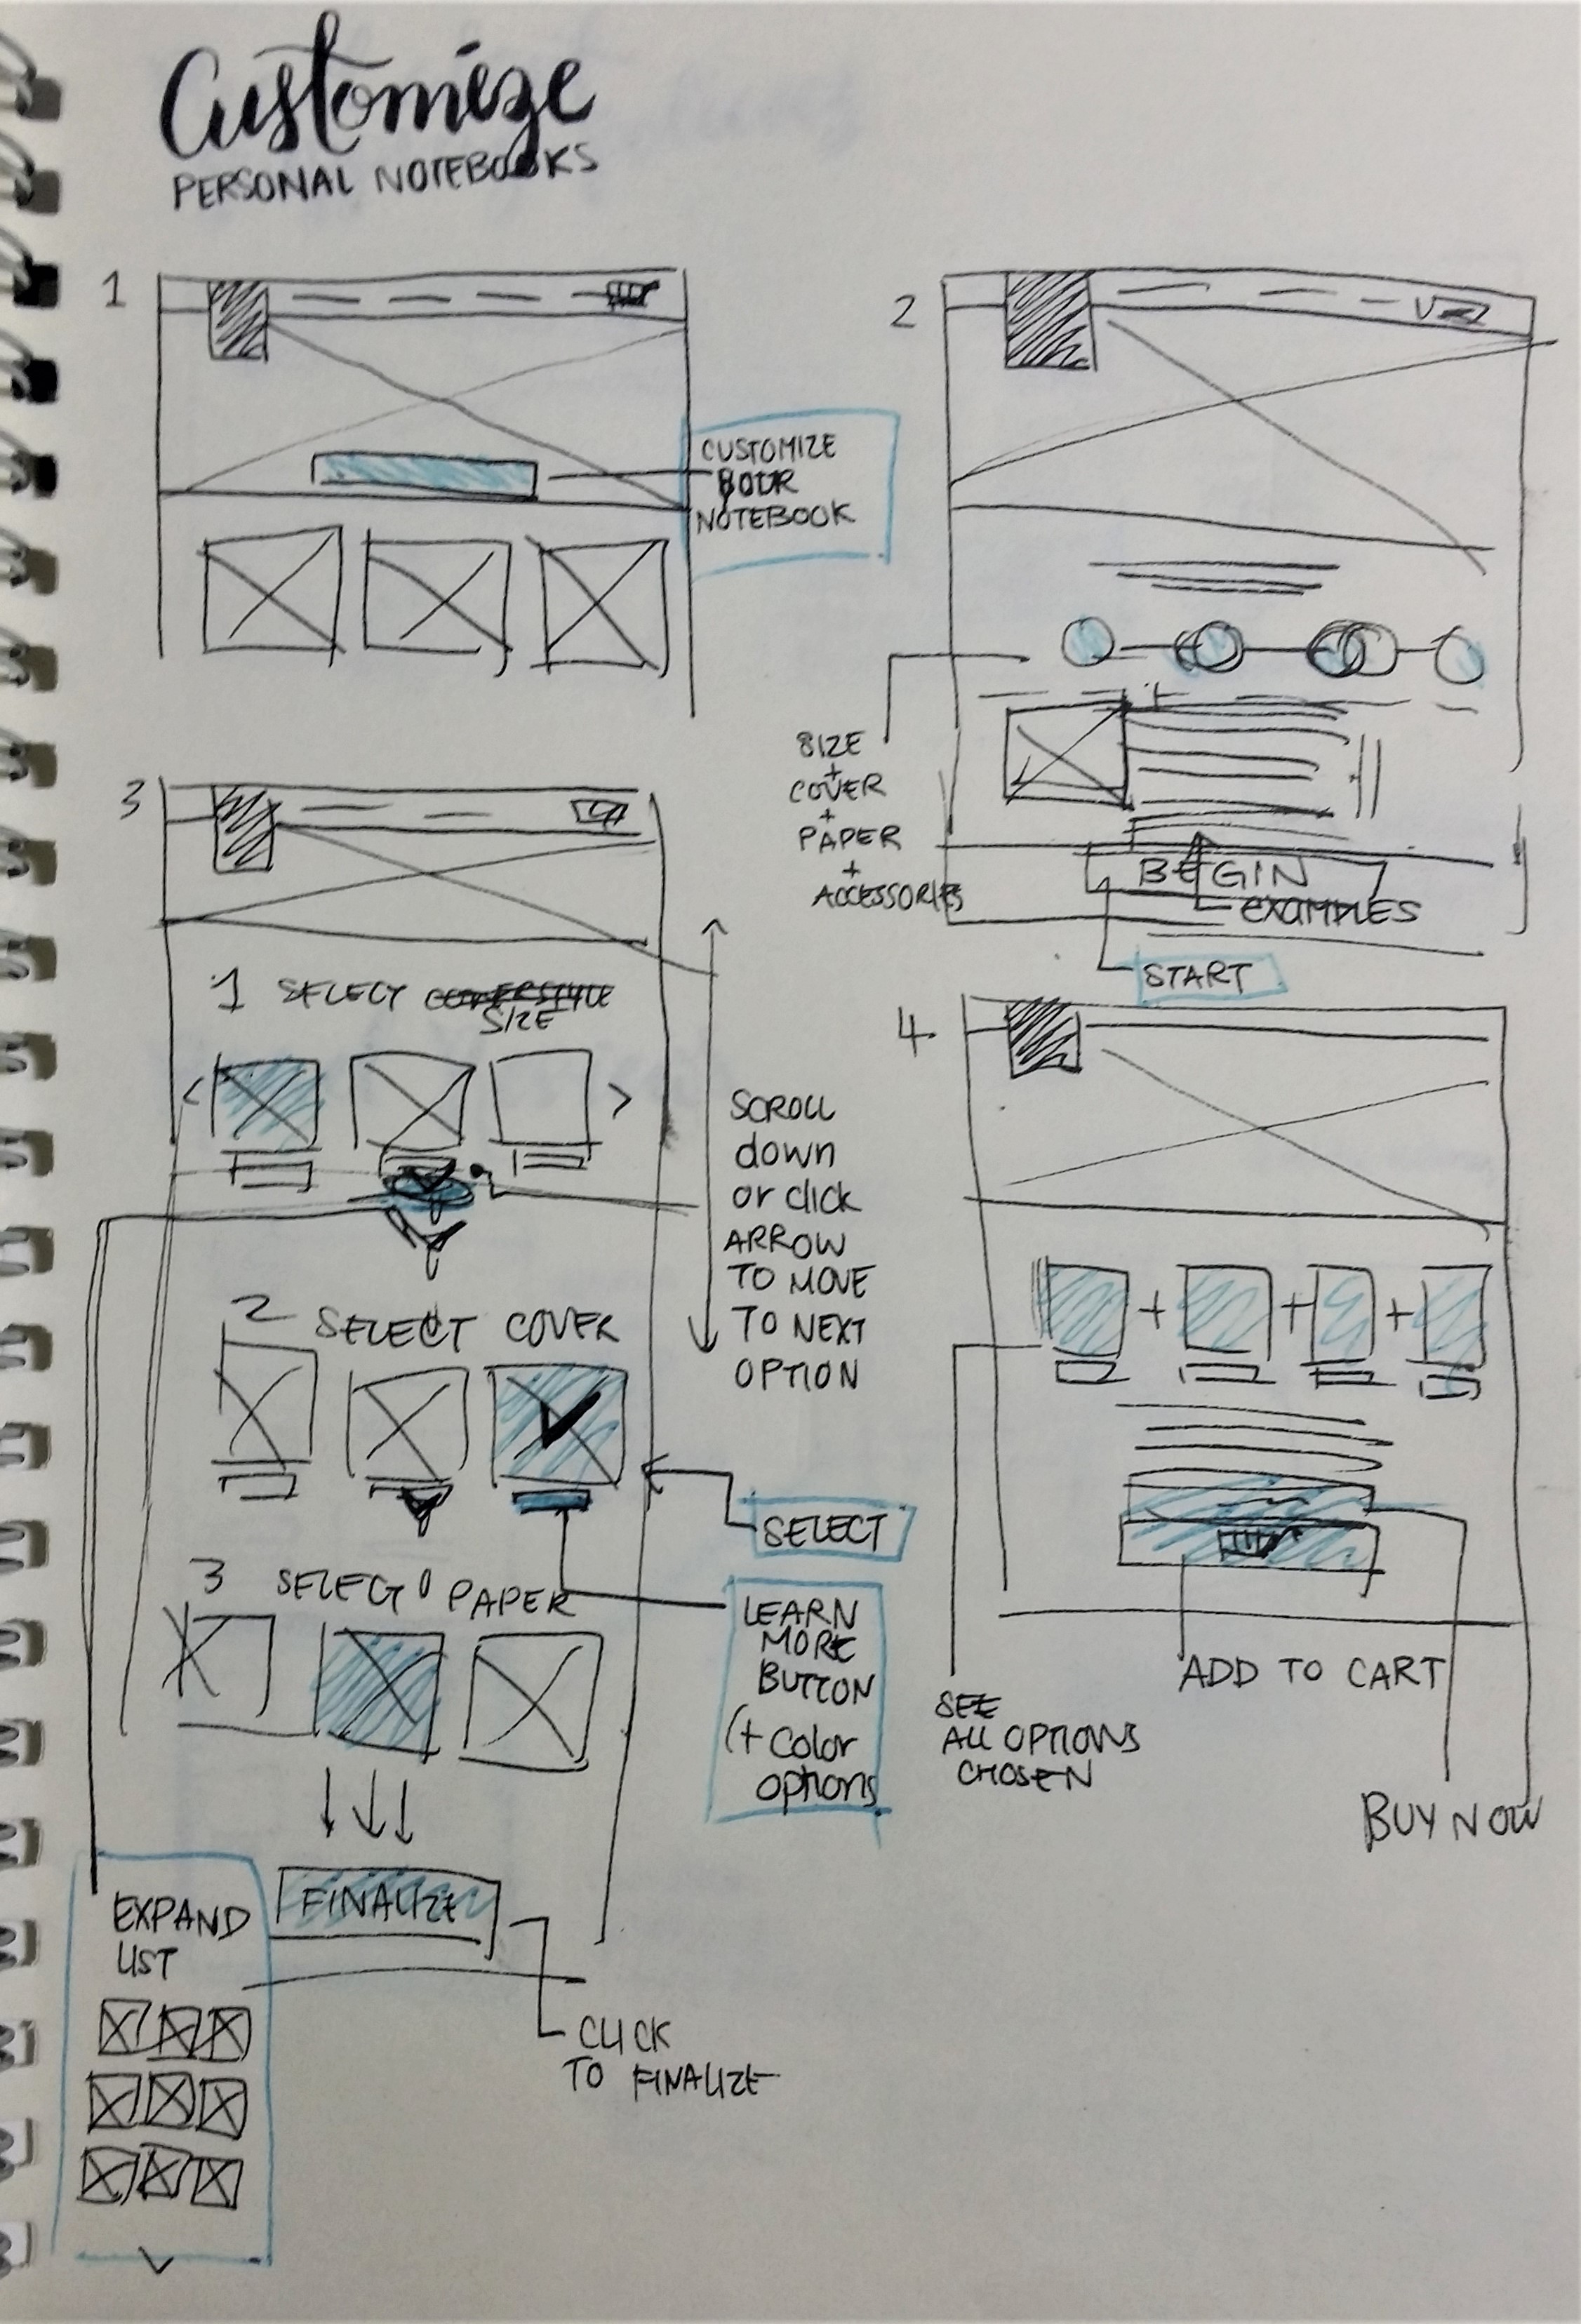 Customize
PERSONAL NOTEBOOKS
1
CUSTOMIZE
YOUR
NOTEBOOK
2
SIZE
+
COVER
+
PAPER
+
ACCESSORIES
BEGIN
EXAMPLES
START
3
1 SELECT COVER STYLE
SIZE
SCROLL
down
or click
ARROW
TO MOVE
TO NEXT
OPTION
2 SELECT COVER
SELECT
3 SELECT PAPER
LEARN
MORE
BUTTON
(+ Color
options
FINALIZE
CLICK
TO FINALIZE
EXPAND
LIST
4
+ + +
SEE
ALL OPTIONS
CHOSEN
ADD TO CART
BUY NOW